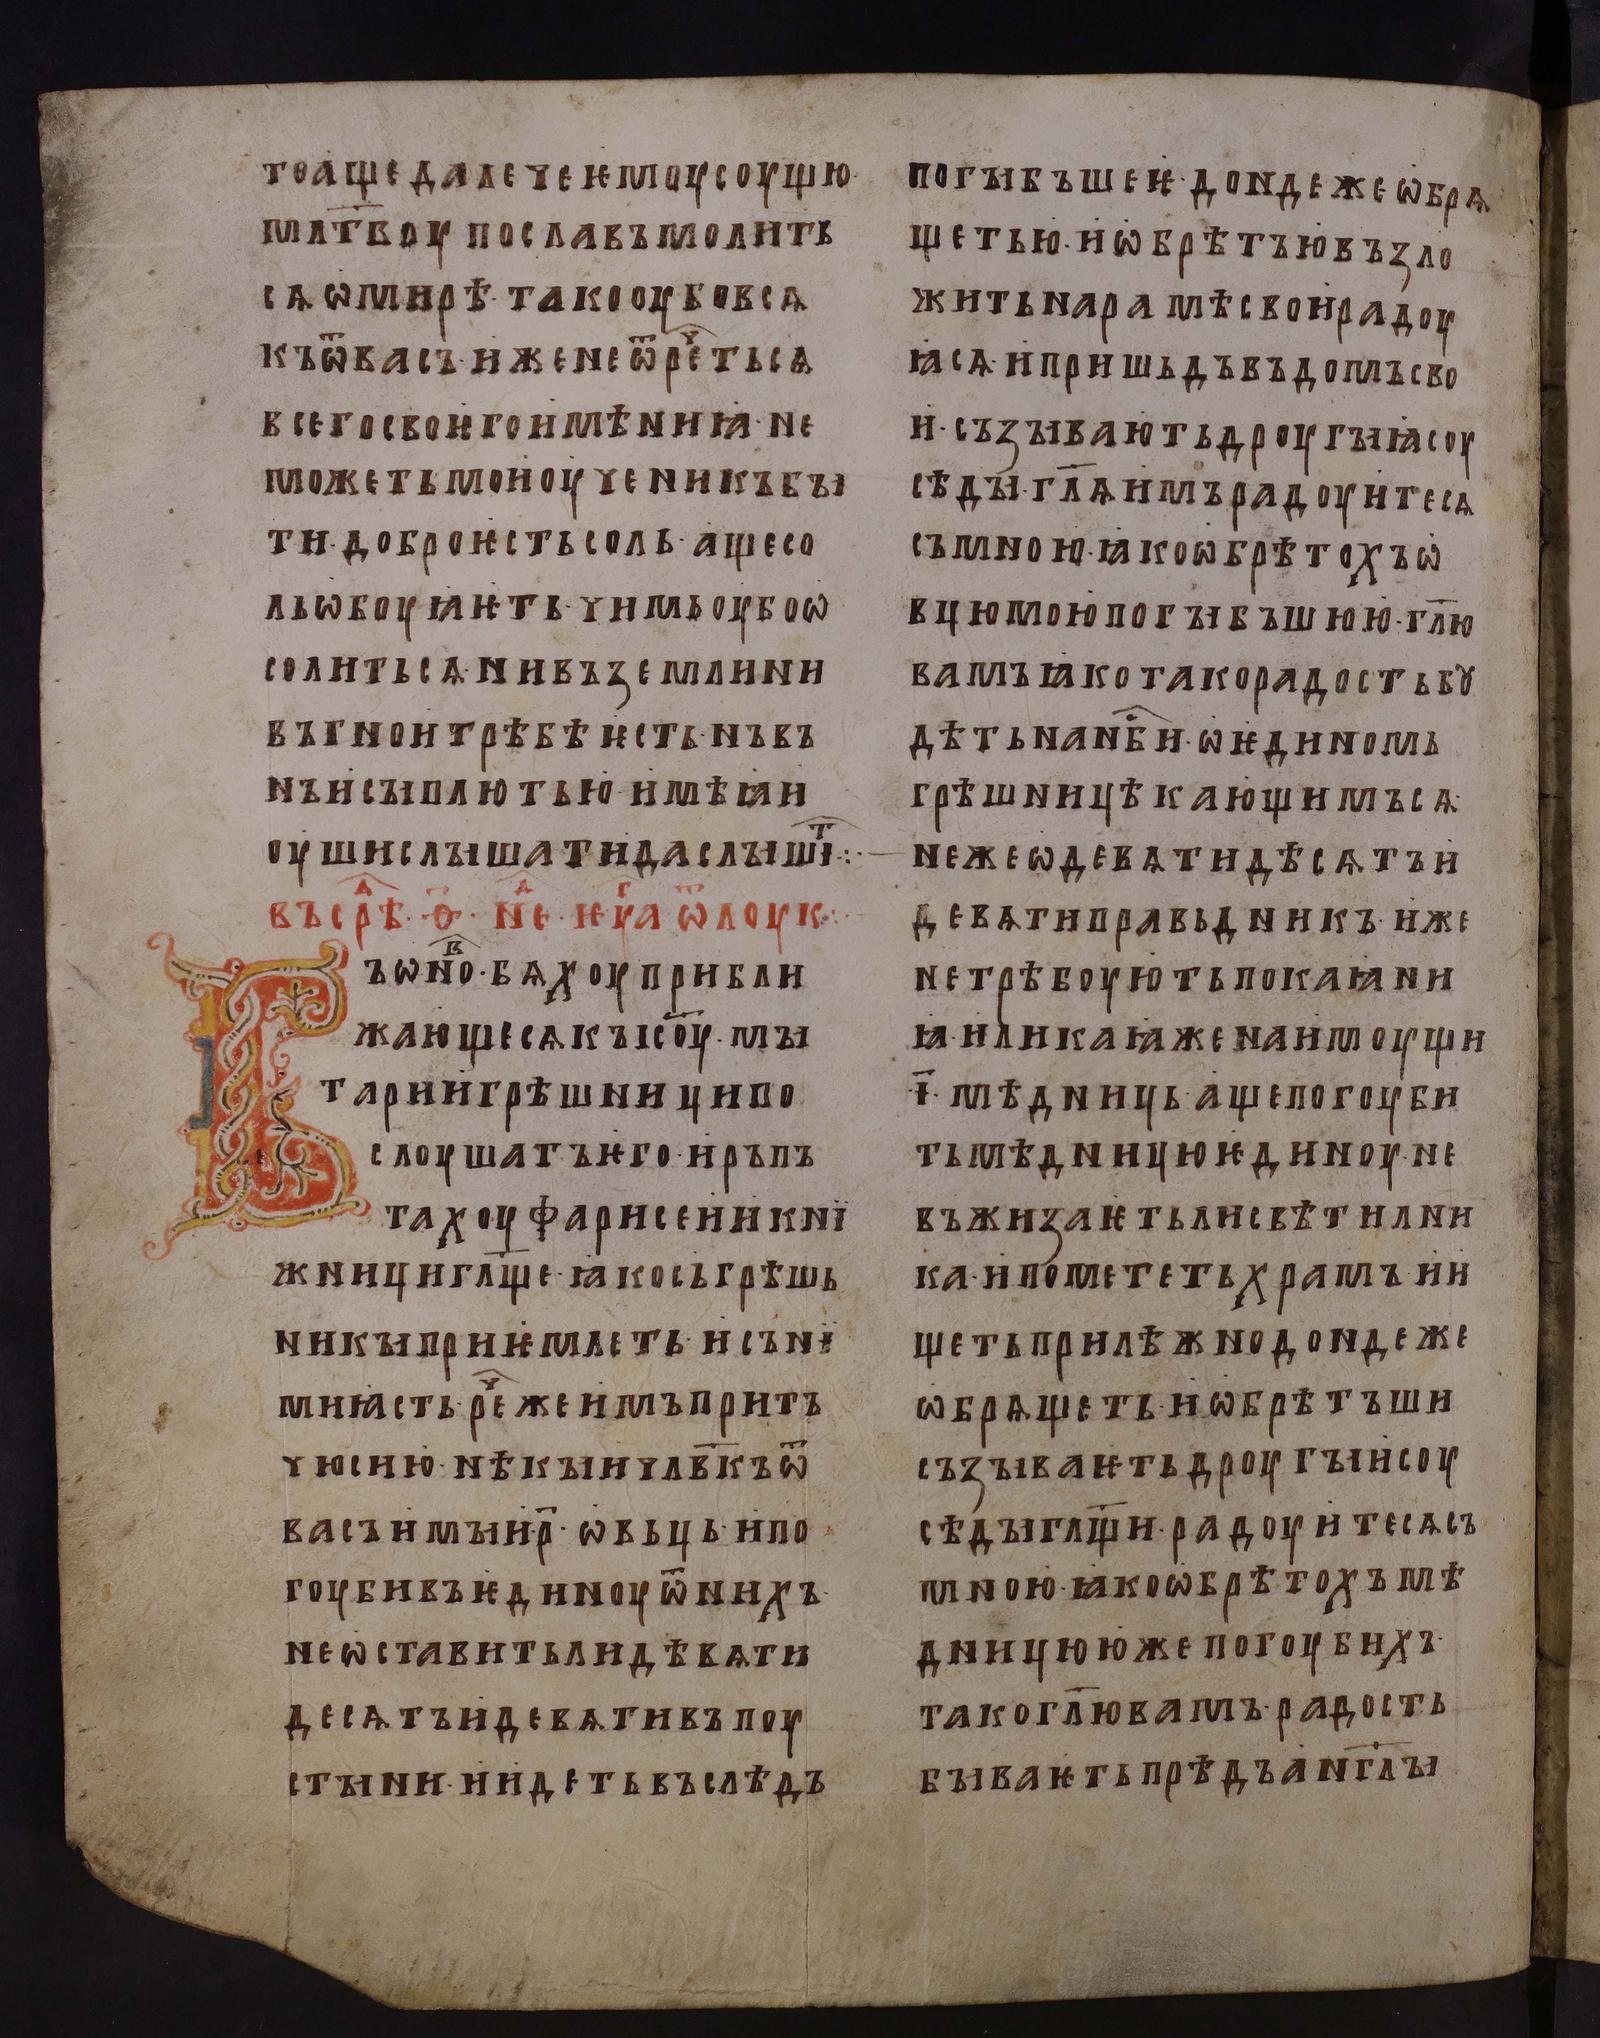 то аще далече ѥмоу соущю·
млт҃воу пославъ молить
сѧ ѡ мирѣ· тако оубо всѧ
къ ѿ васъ· иже не ѿреч҇тьсѧ
всего своѥго имѣниꙗ· не
можеть мои оученикъ бꙑ
ти· добро ѥсть соль· аще со
ль ѡбоуꙗѥть· чимь оубо ѡ
солитьсѧ· ни въ земли ни
въ гнои трѣбѣ ѥсть· нъ въ
нъ исꙑплють ю· имѣꙗи
оуши слꙑшати да слꙑшт҇і⁘
въ срⷣѣ· ѳ҃· нⷣе· ѥуⷢа ѿ лоук⁘
Въ ѡно вⷬ· бѧхоу прибли
жающесѧ къ ісо҃у· мꙑ
тари и грѣшници по
слоушатъ ѥго· и ръпъ
тахоу фарисеи и кнї
жници гл҃ще· ꙗко сь грѣшь
никꙑ приѥмлеть· и съ нї
ми ꙗсть· реч҇ же имъ притъ
чю сию· нѣкꙑи члв҃къ ѿ
васъ имꙑи р҃· ѡвьць· и по
гоуби въ ѥдиноу ѿ нихъ·
не ѡставить ли дѣвѧти
десѧтъ и девѧти въ поу
стꙑни· и идеть въслѣдъ
погꙑбъшеѥ· дондеже ѡбрѧ
щеть ю· и ѡбрѣтъ ю възло
жить на рамѣ свои радоу
ꙗсѧ· и пришьдъ въ домъ сво
и· съзꙑвають дроугꙑꙗ соу
сѣдꙑ· гл҃ѧ имъ радоуитесѧ
съ мною· ꙗко ѡбрѣтохъ ѡ
вцю мою погꙑбъшюю· гл҃ю
вамъ ꙗко тако радость бꙋ
дѣть на нб҃и· ѡ ѥдиномь
грѣшницѣ кающимъсѧ·
неже ѡ девѧтидѣсѧтъ и
девѧти правьдникъ· иже
не трѣбоують покаꙗни
ꙗ· или каꙗ жена имоущи
і҃· мѣдниць· аще погоуби
ть мѣдницю ѥдиноу· не
въжизаѥть ли свѣтилни
ка· и помететь храмъ и и
щеть прилѣжно дондеже
ѡбрѧщеть· и ѡбрѣтъши
съзꙑваѥть дроугꙑ и соу
сѣдꙑ гл҃щи· радоуитесѧ съ
мною· ꙗко ѡбрѣтохъ мѣ
дницю юже погоубихъ·
тако гл҃ю вамъ· радость
бꙑваѥть прѣдъ англ҃ꙑ